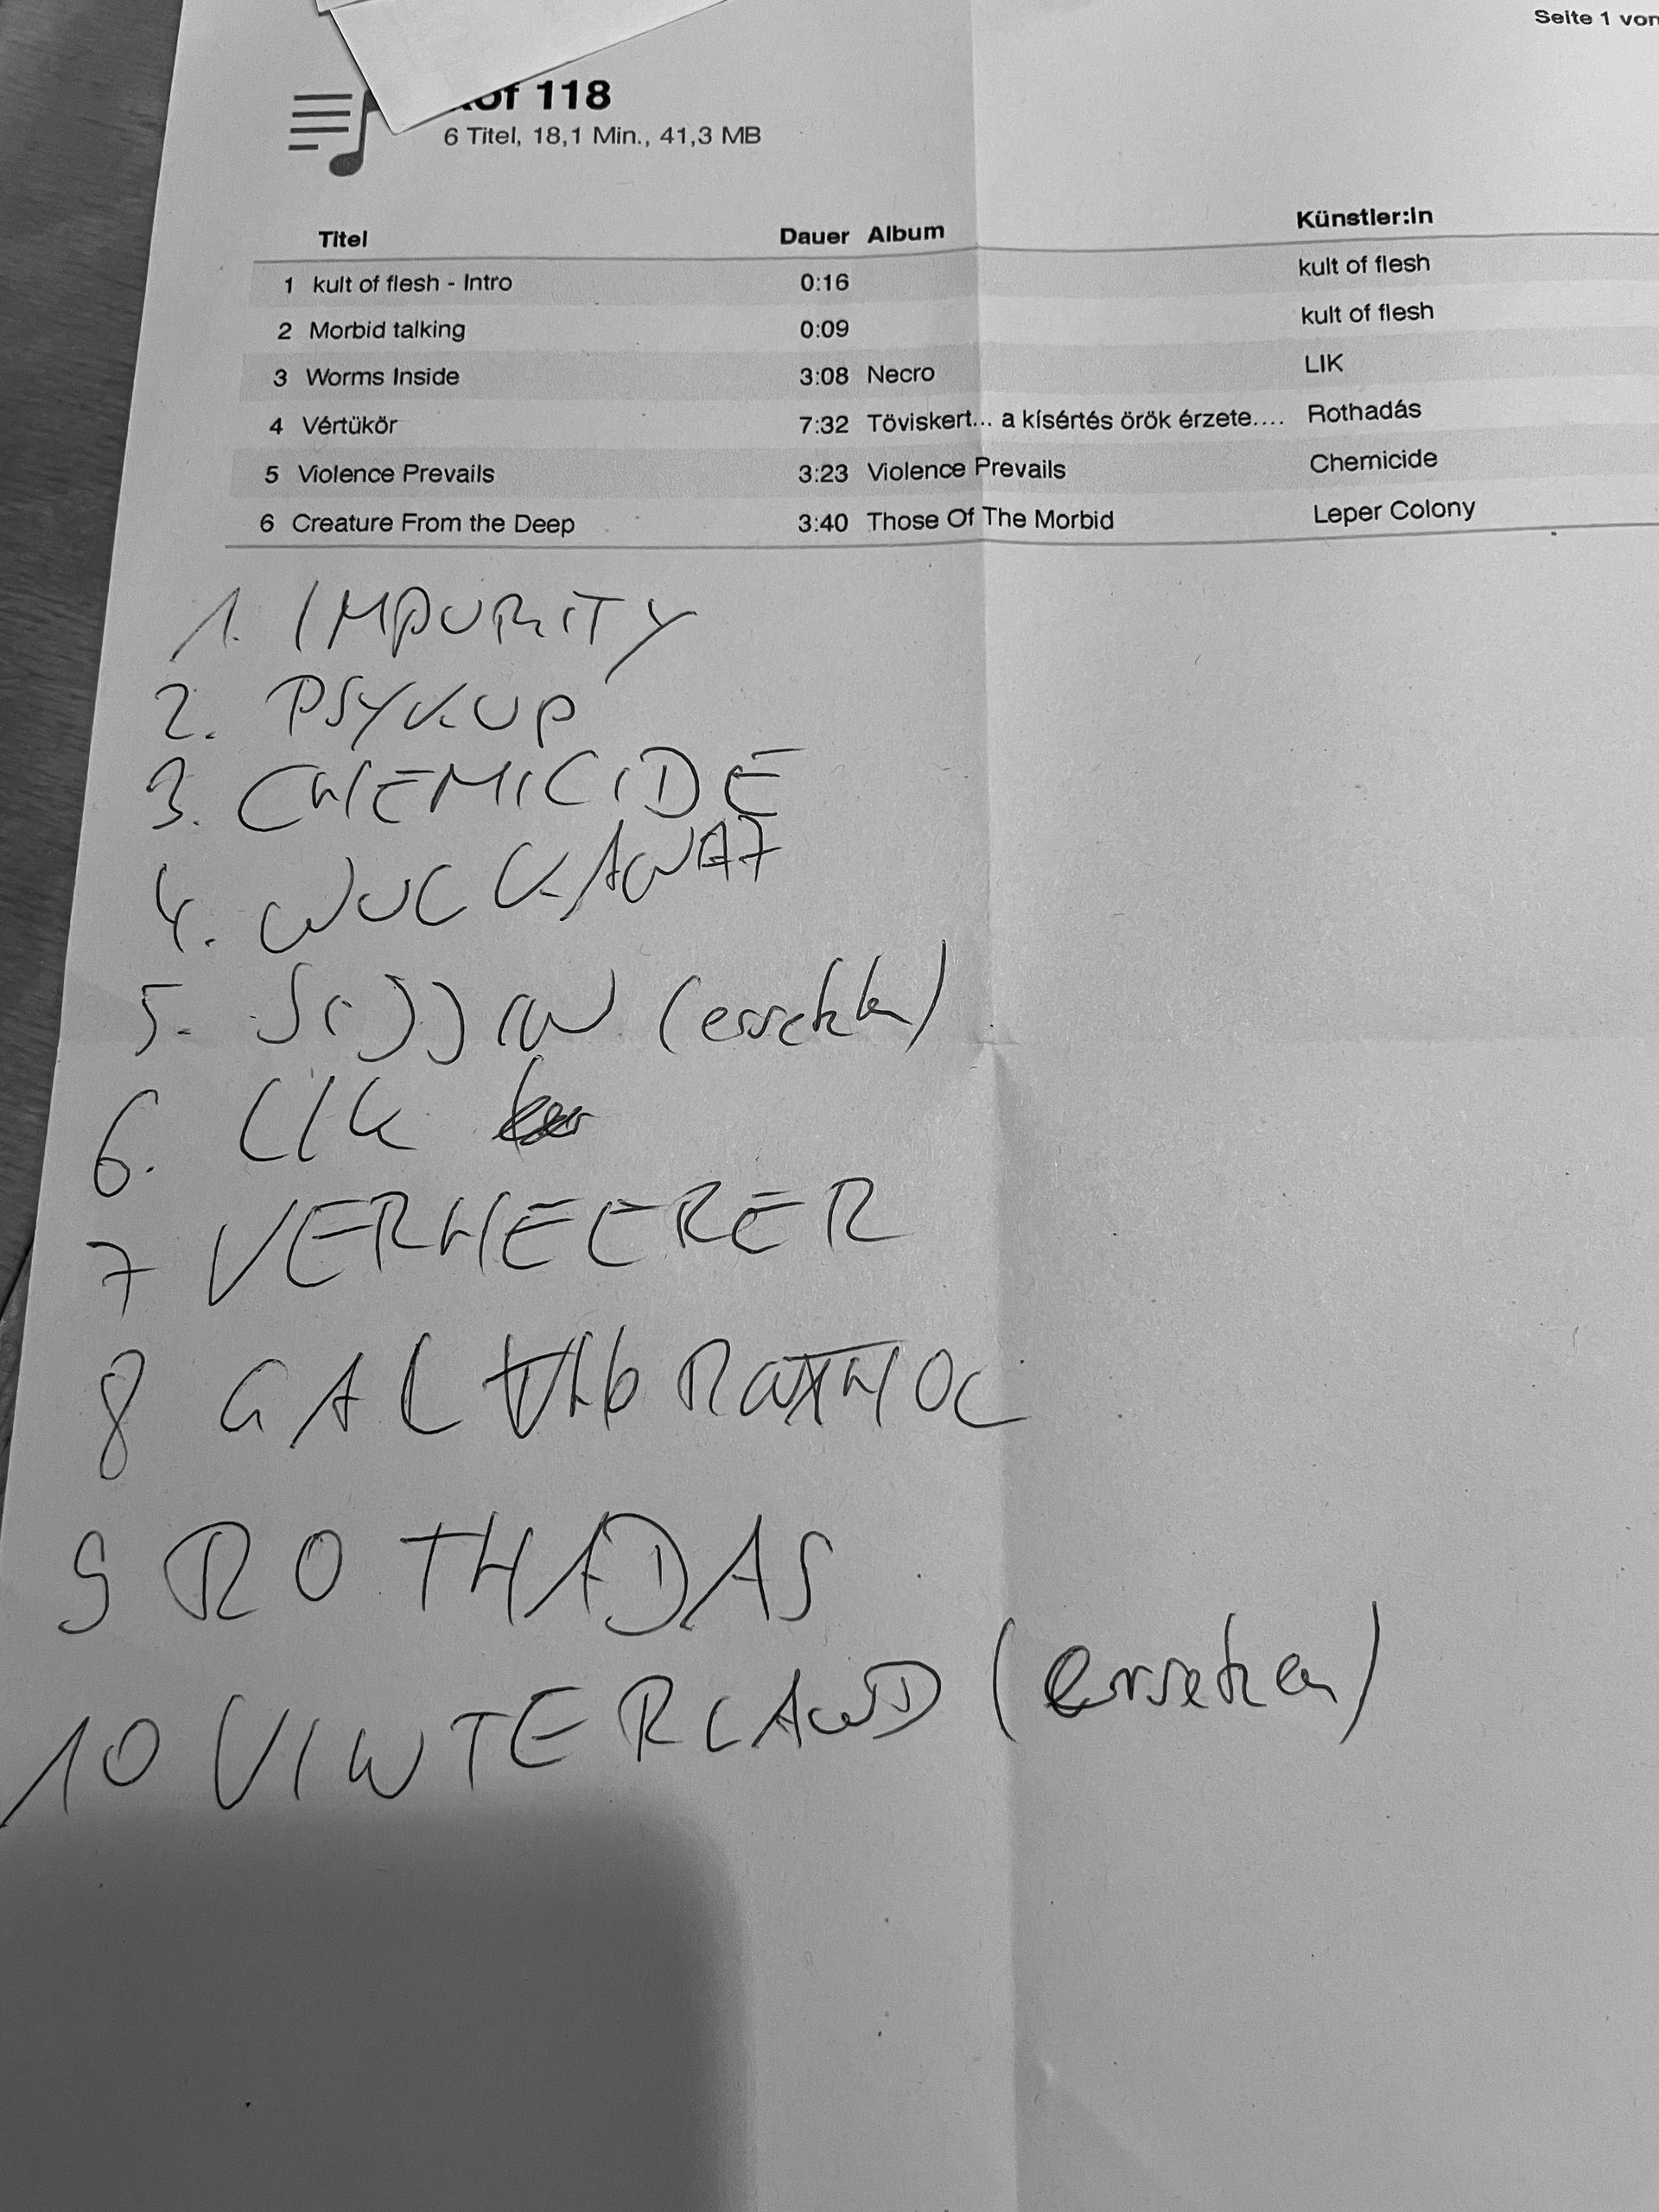 Seite 1 von
118
6 Titel, 18,1 Min., 41,3 MB
Titel Dauer Album Künstler:in
1 kult of flesh - Intro 0:16 kult of flesh
2 Morbid talking 0:09 kult of flesh
3 Worms Inside 3:08 Necro LIK
4 Vértükör 7:32 Töviskert... a kísértés örök érzete.... Rothadás
5 Violence Prevails 3:23 Violence Prevails Chemicide
6 Creature From the Deep 3:40 Those Of The Morbid Leper Colony
1. IMPURITY
2. PSYKUP
3. CHEMICIDE
4.
5. SIJJIN (ersetzen)
6. LIK
7 VERHEERER
8
9 ROTHADAS
10 VINTERLAND (ersetzen)